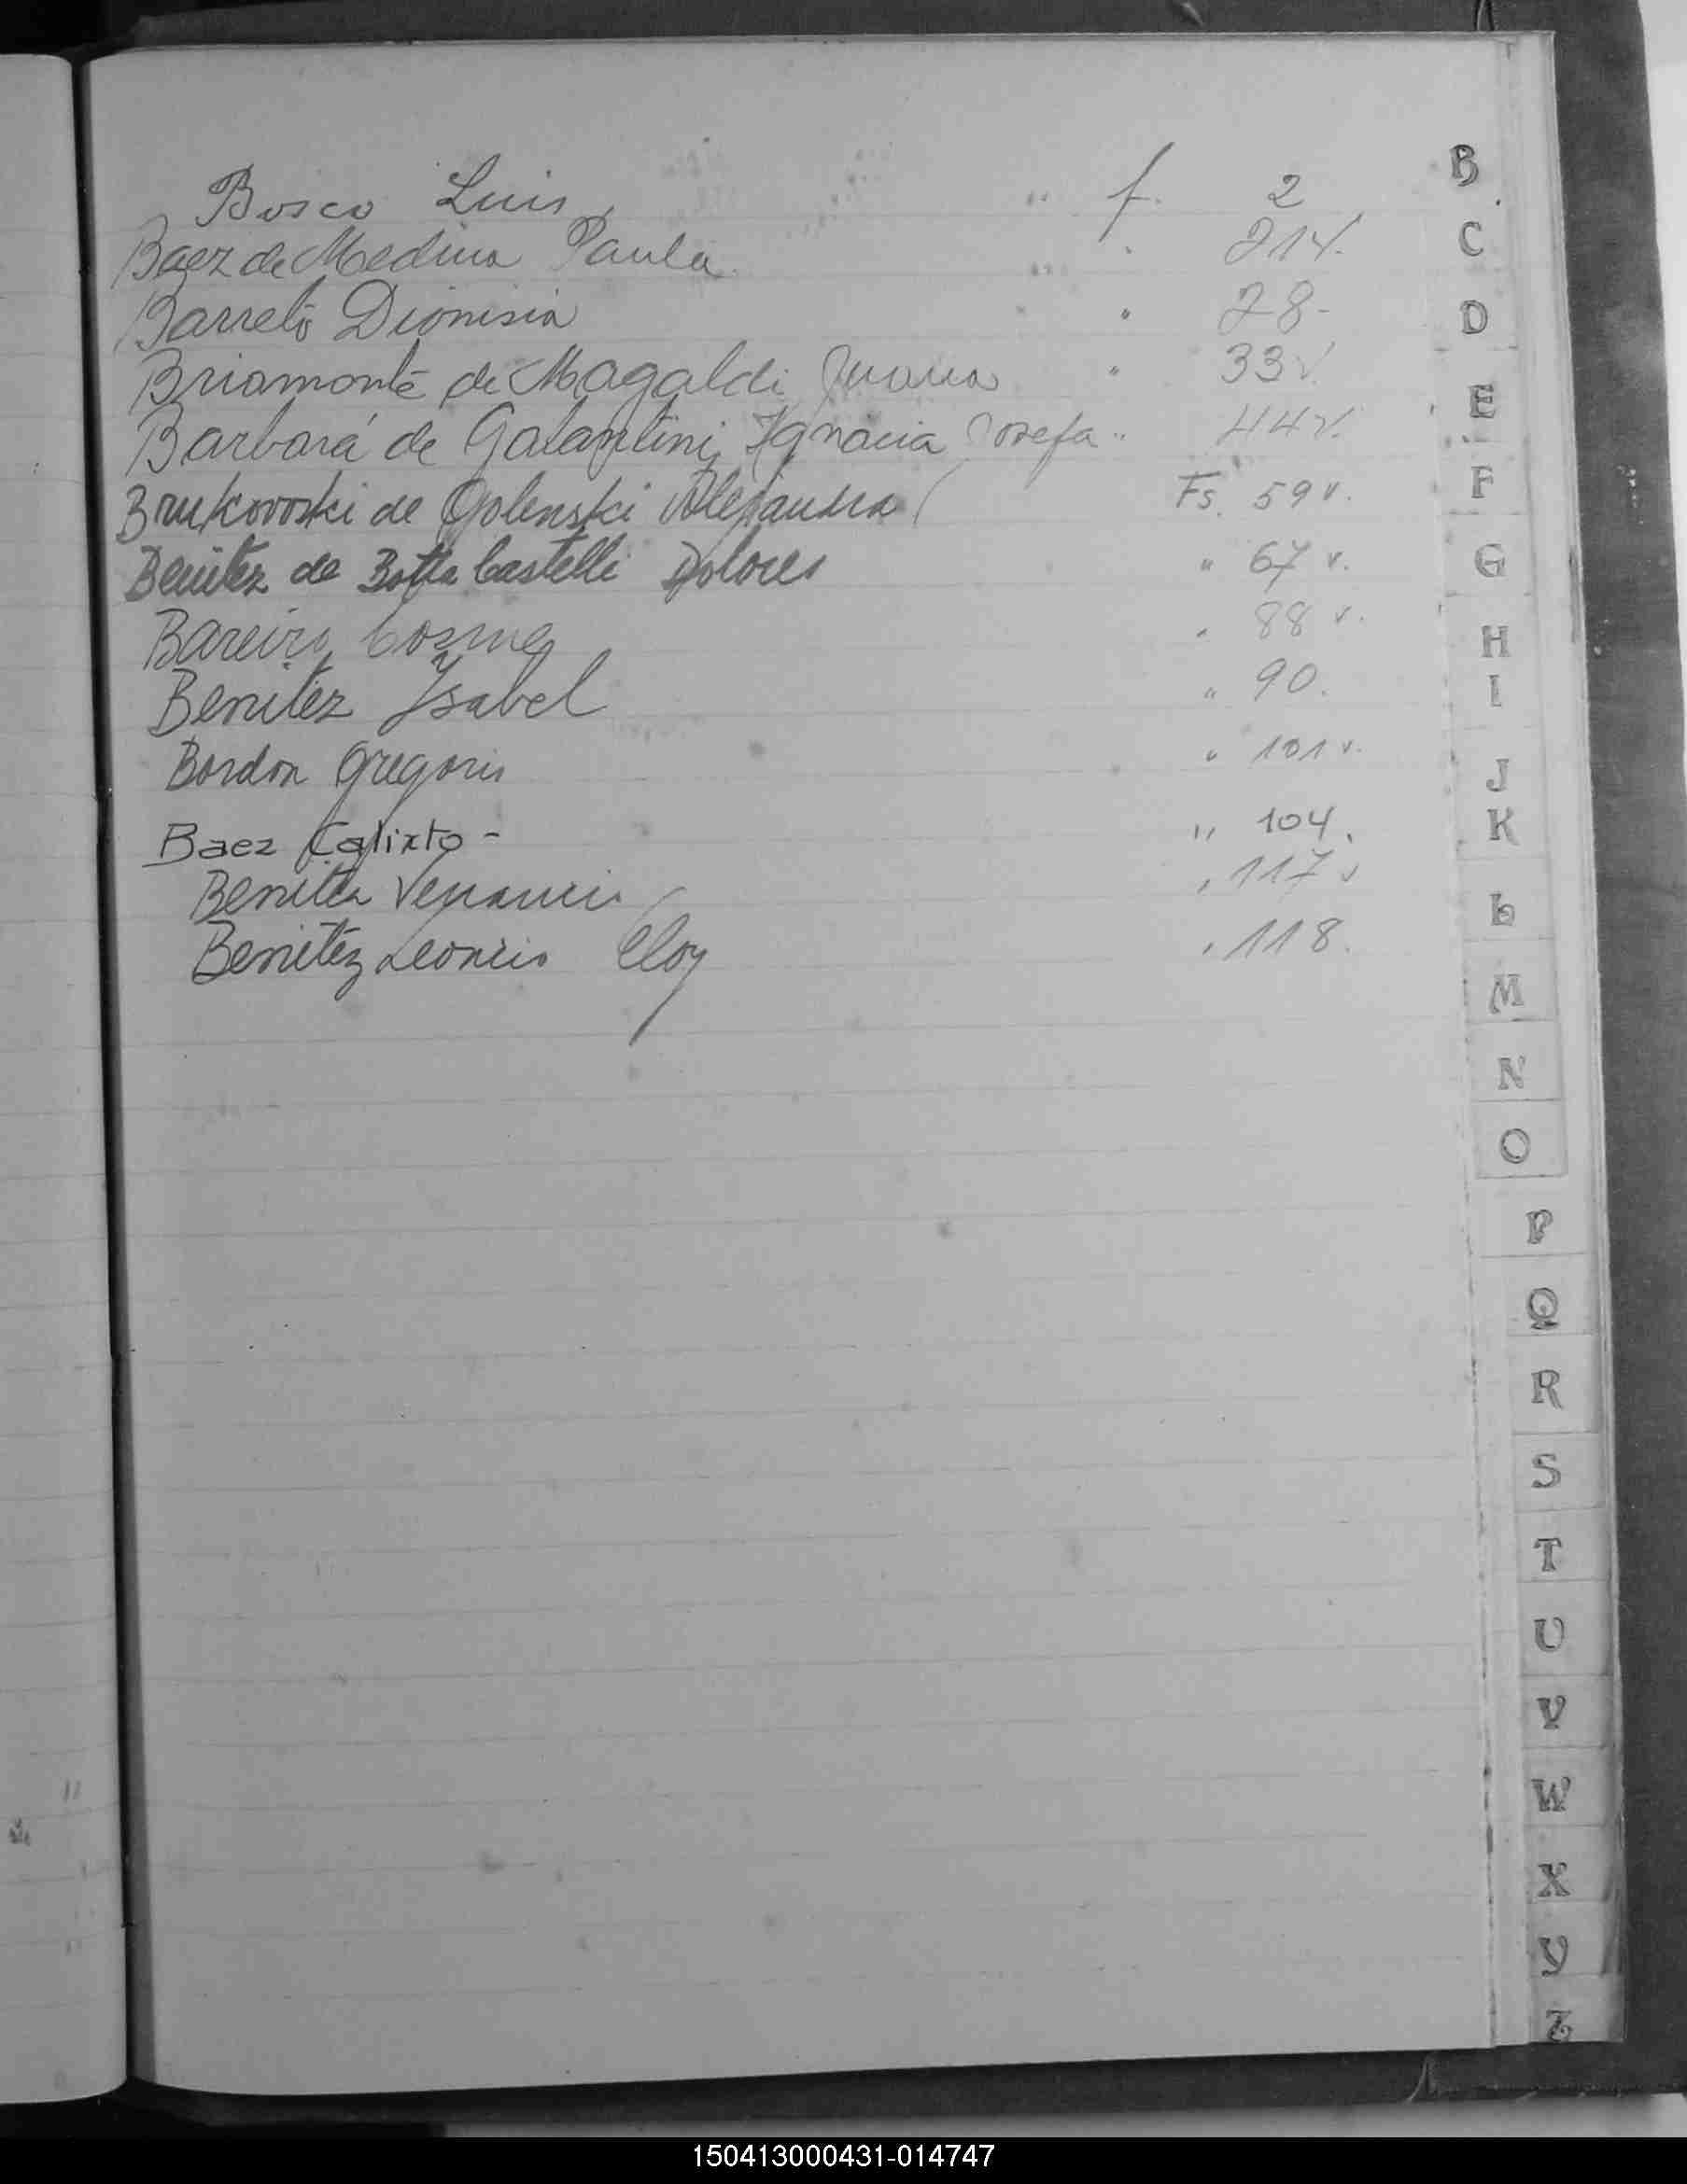 B
Bosco Luis " f. 2
Baez de Medina Paula " " 21v.
Barreto Dionisia " 28.
Briamonte de Magaldi Juana " 33v.
Barbará de Galantini, Ignacia Josefa " 44v.
Brukovoski de Golenski Alejandra Fs. 59v.
Benitez de Botta Castelli Dolores " 67 v.
Bareiro, Cosme " 88 v.
Benitez Isabel " 90.
Bordon Gregorio " 101 v.
Baez Calixto - " 104.
Benitez Venancio " 117 v
Benitez Leoncio Eloy " 118.
C
D
E
F
G
H
I
J
K
L
M
N
O
P
Q
R
S
T
U
V
W
X
Y
Z
150413000431-014747